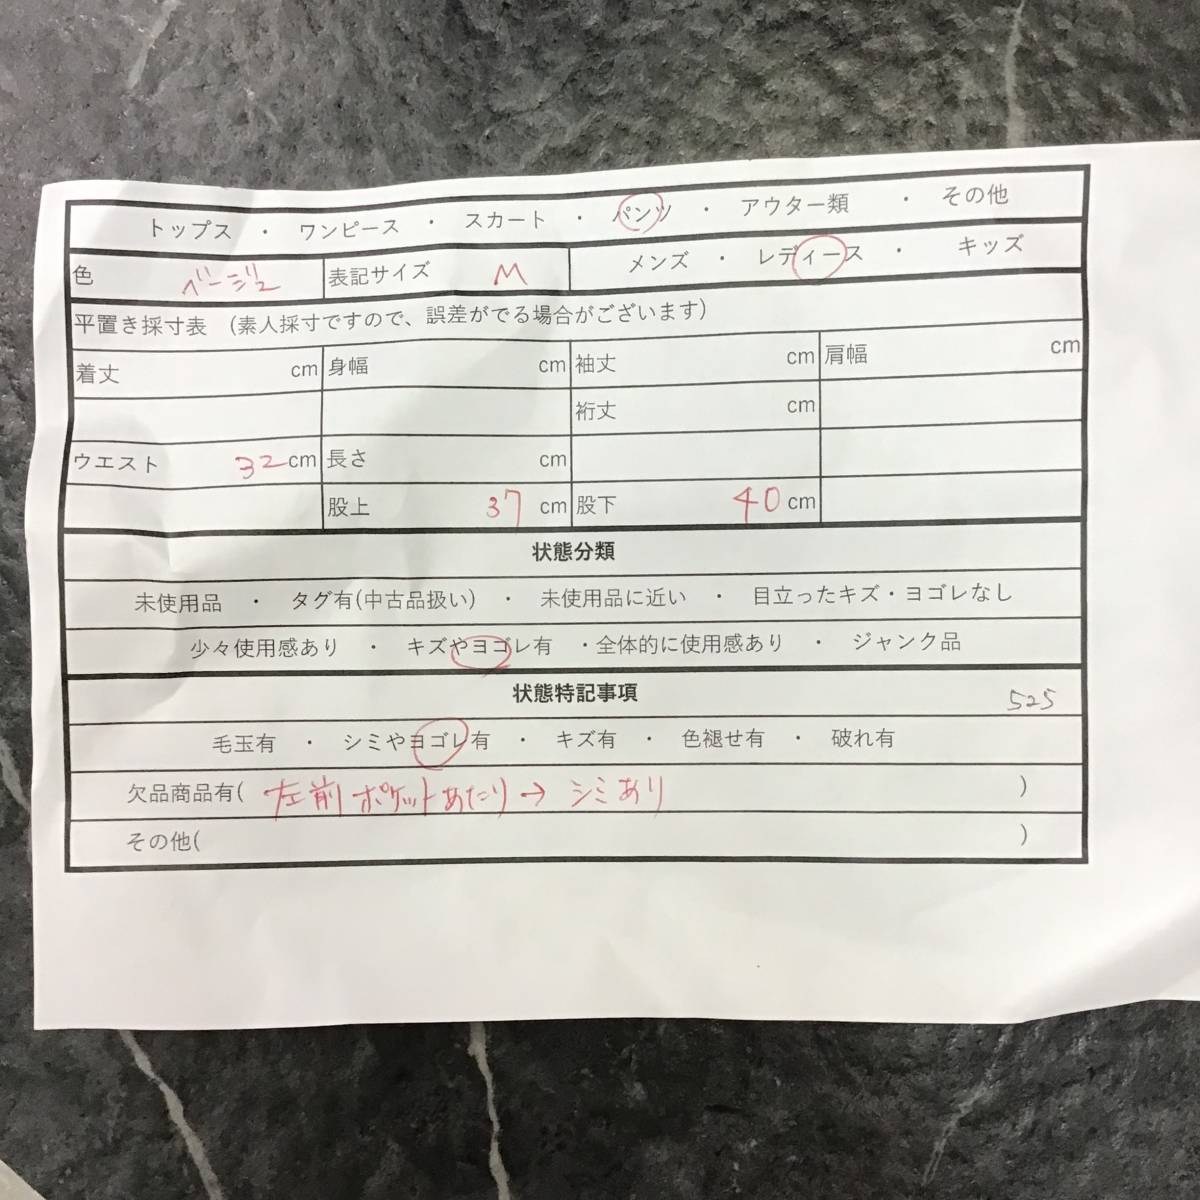 トップス ・ ワンピース ・ スカート ・ パンツ ・ アウター類 ・ その他
色 ベージュ 表記サイズ M メンズ ・ レディース ・ キッズ
平置き採寸表 (素人採寸ですので、誤差がでる場合がございます)
着丈 cm 身幅 cm 袖丈 cm 肩幅 cm
裄丈 cm
ウエスト 32cm 長さ cm
股上 37 cm 股下 40cm
状態分類
未使用品 ・ タグ有(中古品扱い) ・ 未使用品に近い ・ 目立ったキズ・ヨゴレなし
少々使用感あり ・ キズやヨゴレ有 ・全体的に使用感あり ・ ジャンク品
状態特記事項 525
毛玉有 ・ シミやヨゴレ有 ・ キズ有 ・ 色褪せ有 ・ 破れ有
欠品商品有( 左前ポケットあたり→シミあり )
その他( )